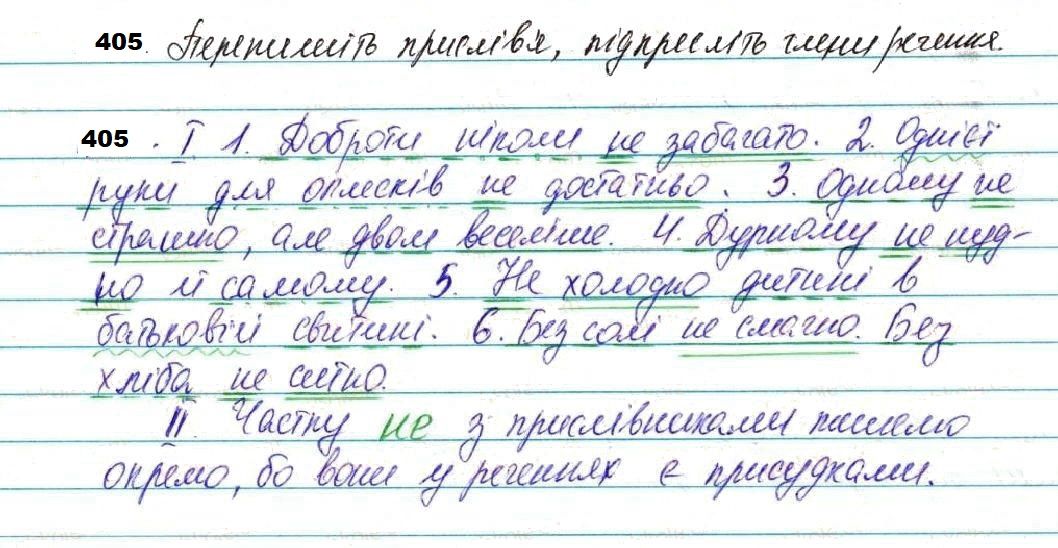 405. Перепишіть прислів'я, підкресліть члени речення.
405. І 1. Доброти ніколи не забагато. 2. Однієї
руки для оплесків не достатньо. 3. Одному не
страшно, але двом веселіше. 4. Дурному не нуд-
но й самому. 5. Не холодно дитині в
батьковій свитині. 6. Без солі не смачно. Без
хліба не ситно.
ІІ. Частку не з прислівниками пишемо
окремо, бо вони у реченнях є присудками.